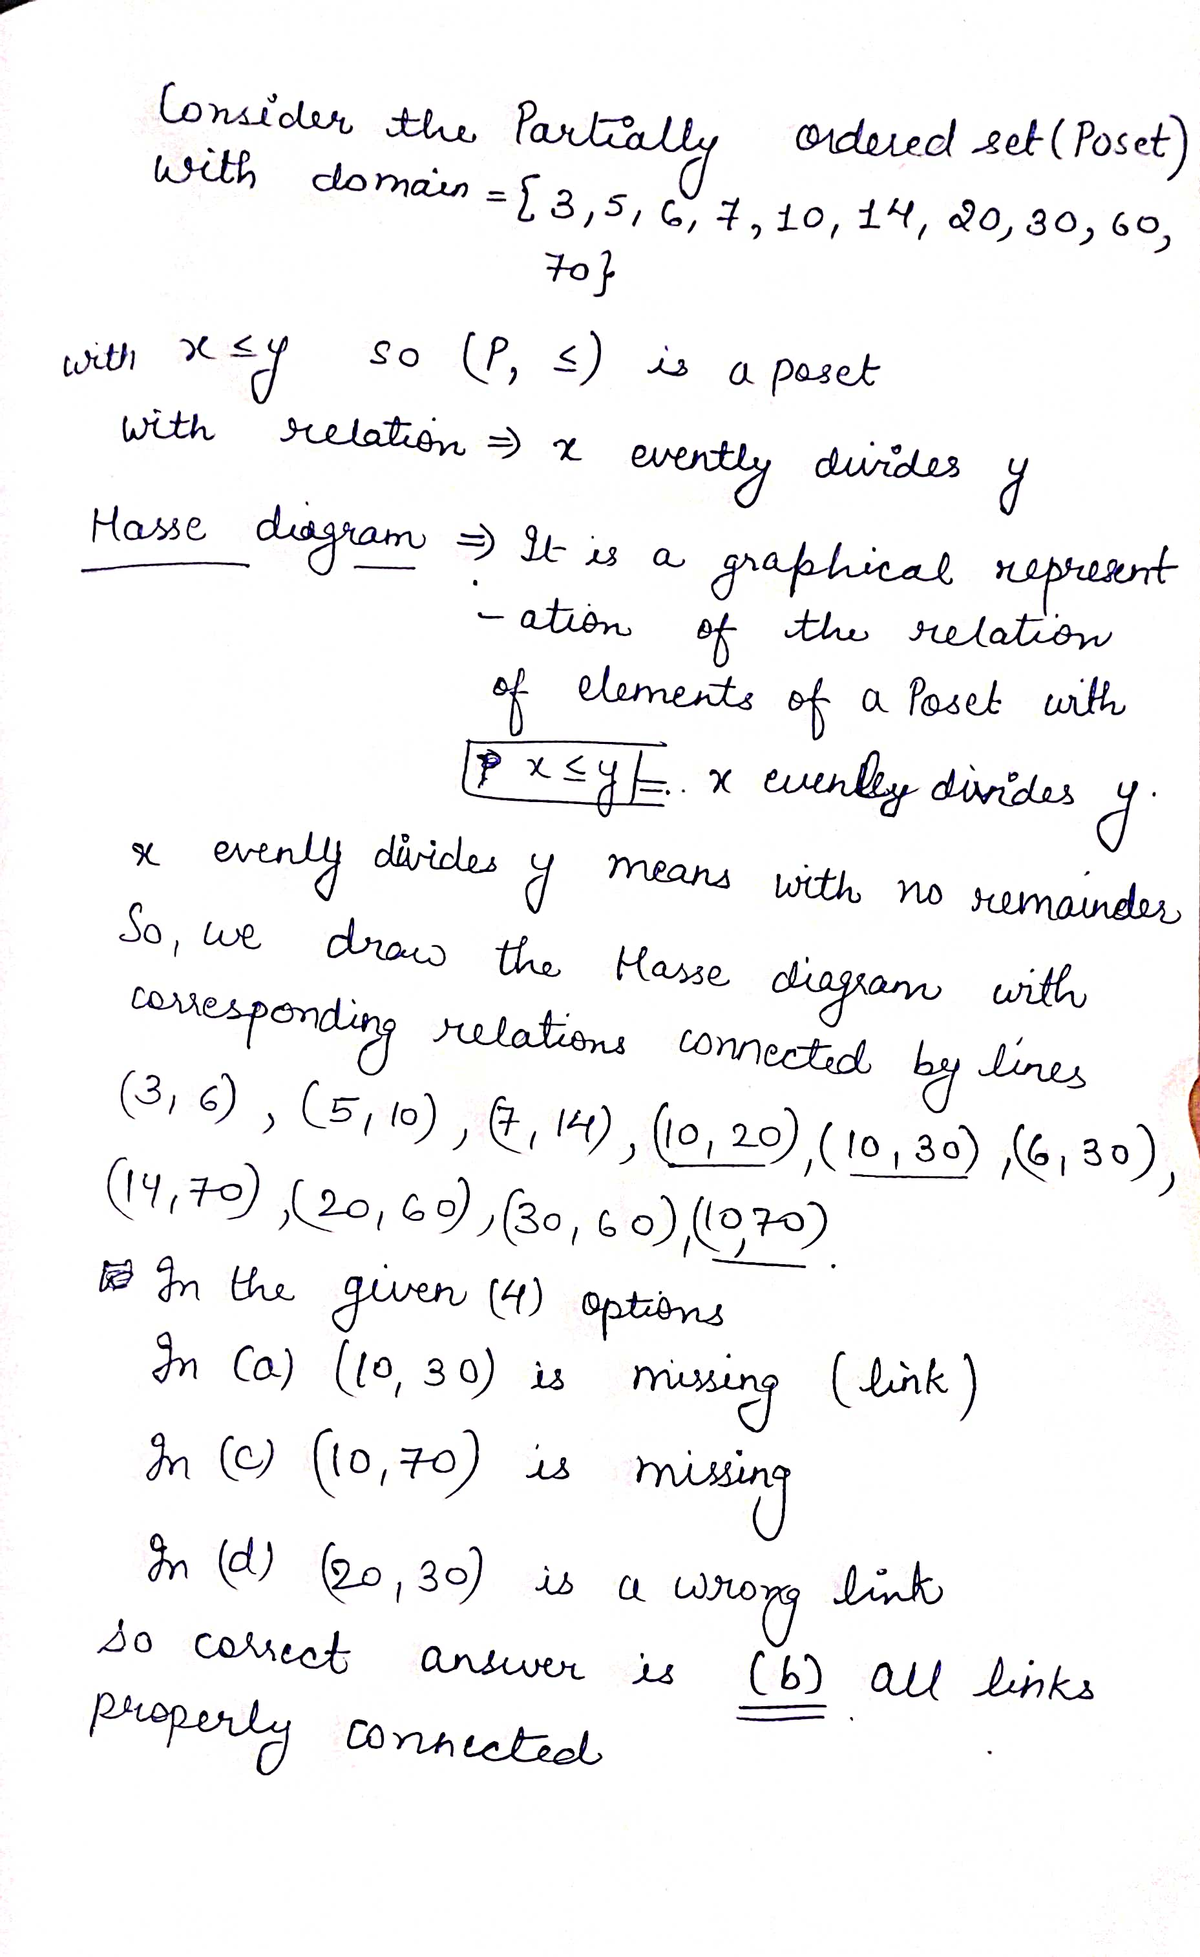 Consider the Partially ordered set (Poset)
with domain = { 3, 5, 6, 7, 10, 14, 20, 30, 60,
70}
with x ≤ y so (P, ≤) is a poset
with relation ⇒ x evently divides y
Hasse diagram ⇒ It is a graphical represent
- ation of the relation
of elements of a Poset with
x ≤ y = x evenley divides y.
x evenly divides y means with no remainder
So, we draw the Hasse diagram with
corresponding relations connected by lines
(3, 6), (5, 10), (7, 14), (10, 20), (10, 30), (6, 30),
(14, 70), (20, 60), (30, 60), (10, 70).
In the given (4) options
In (a) (10, 30) is missing (link)
In (c) (10, 70) is missing
In (d) (20, 30) is a wrong link
so correct answer is (b). all links
properly connected